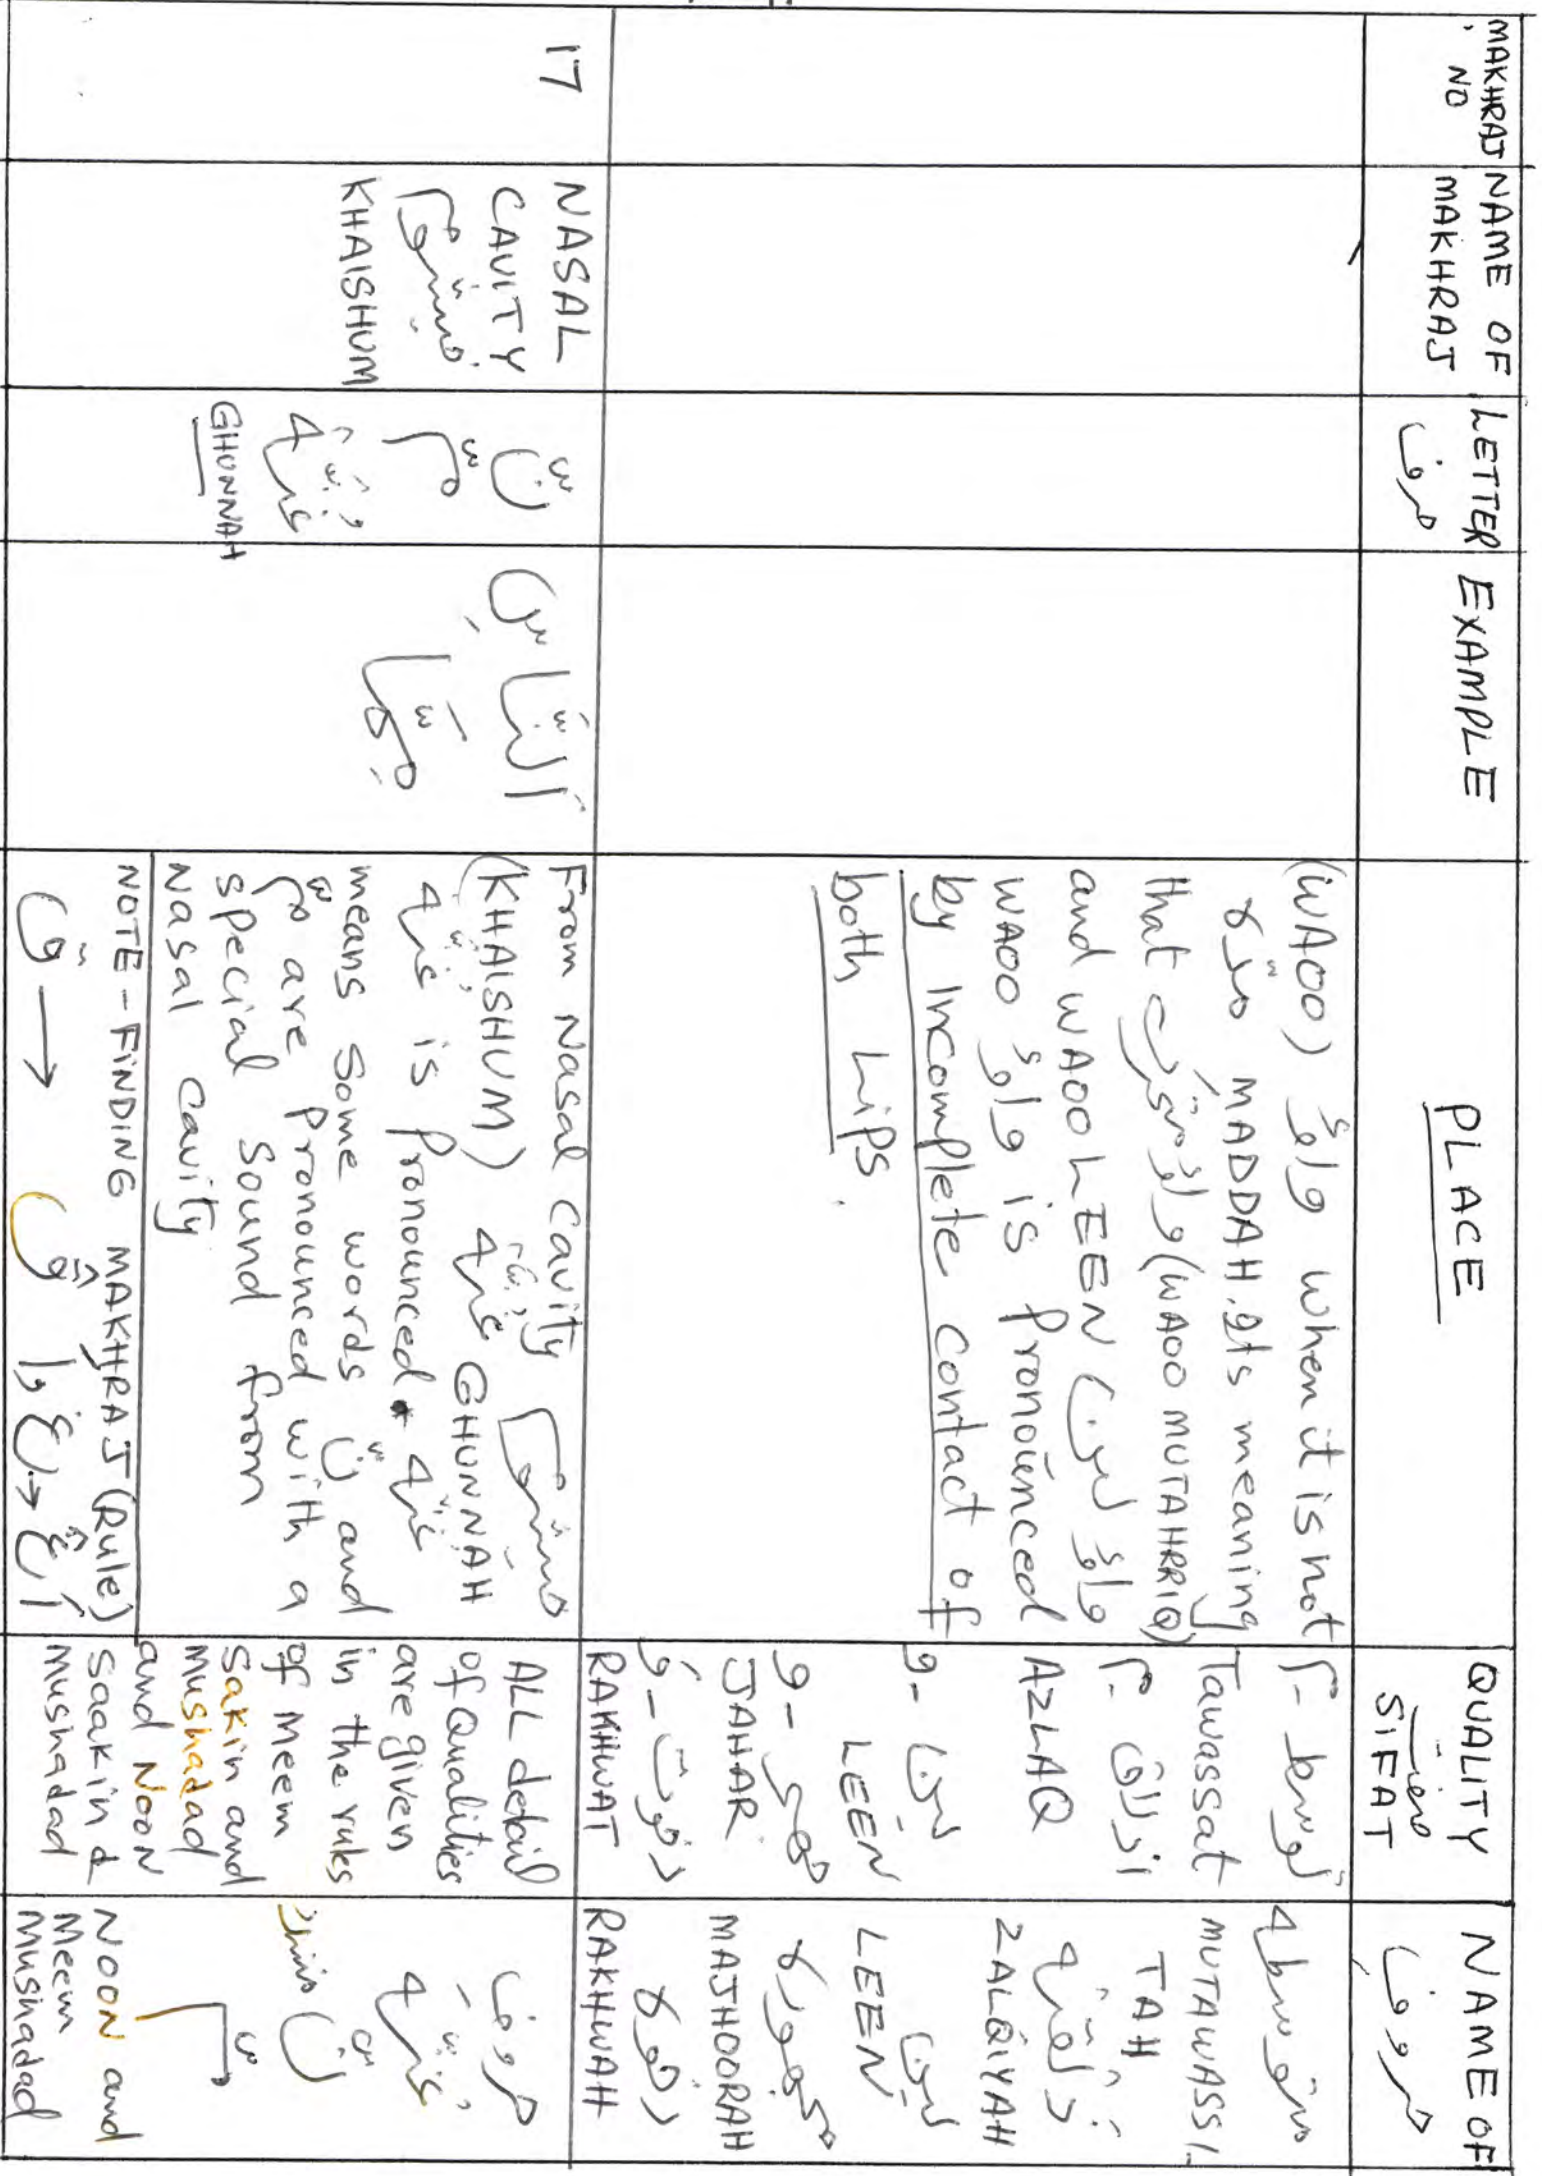 MAKHRAJ NO
NAME OF MAKHRAJ
LETTER حروف
EXAMPLE
PLACE
QUALITY صفت SIFAT
NAME OF حروف
(WAOO) واؤ when it is not
مدّہ MADDAH. Its meaning
that واؤ متحرک (WAOO MUTAHRRIQ)
and WAOO LEEN (واؤ لین)
WAOO واؤ is Pronounced
by Incomplete Contact of
both Lips.
م- توسط
Tawassat
م- ازلاق
AZLAQ
و- لین
LEEN
و- جهر
JAHAR
و- رخوت
RAKHWAT
متوسطہ
MUTAWASSI-
TAH
ذلقیہ
ZALQIYAH
لین
LEEN
مجهورہ
MAJHOORAH
رخوہ
RAKHWAH
17
NASAL
CAVITY
خیشوم
KHAISHUM
نّ
مّ
غنّہ
GHUNNAH
النّاس
ممّا
From Nasal Cavity خیشوم
(KHAISHUM) غنّہ GHUNNAH
غنّہ is Pronounced. غنّہ
means Some words نّ and
مّ are Pronounced with a
special Sound from
Nasal Cavity
NOTE-FINDING MAKHRAJ (Rule)
ALL detail
of Qualities
are given
in the rules
of Meem
Sakin and
Mushadad
and Noon
Saakin &
Mushadad
حروف
غنّہ
نّ
مّ
NOON and
Meem
Mushadad